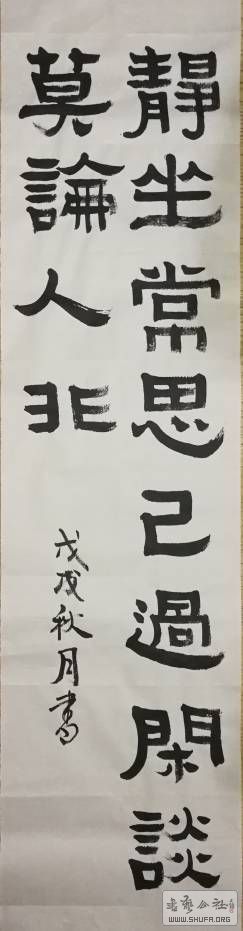 靜坐常思己過閑談
莫論人非
戊戌秋月書
書藝公社
WWW.SHUFA.ORG